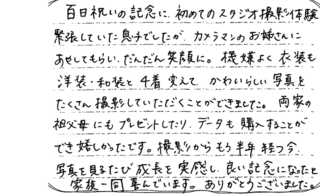 百日祝いの記念に、初めてのスタジオ撮影体験
緊張していた息子でしたが、カメラマンのお姉さんに
あやしてもらい、だんだん笑顔に。機嫌よく衣装も
洋装・和装と4着変えて、かわいらしい写真を
たくさん撮影していただくことができました。両家の
祖父母にもプレゼントしたり、データも購入することが
でき嬉しかったです。撮影からもう半年経つ今、
写真を見るたび成長を実感し、良い記念になったと
家族一同喜んでいます。ありがとうございました。